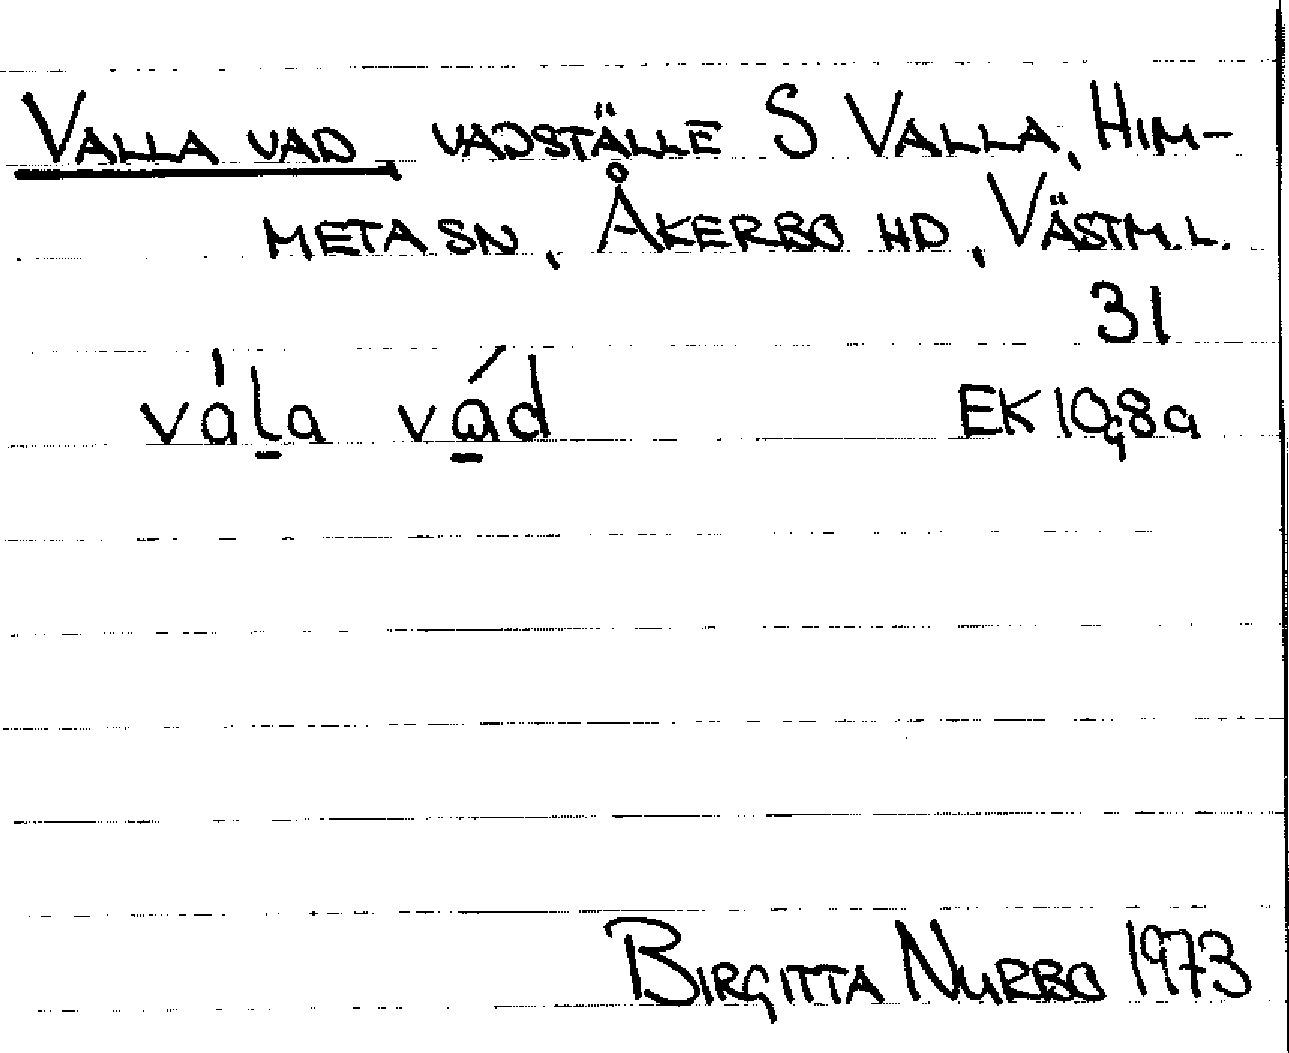 VALLA VAD, VADSTÄLLE S VALLA, HIM-
META SN, ÅKERBO HD, VÄSTM. L.
31
vála vád EK 10g8a
BIRGITTA NURBO 1973